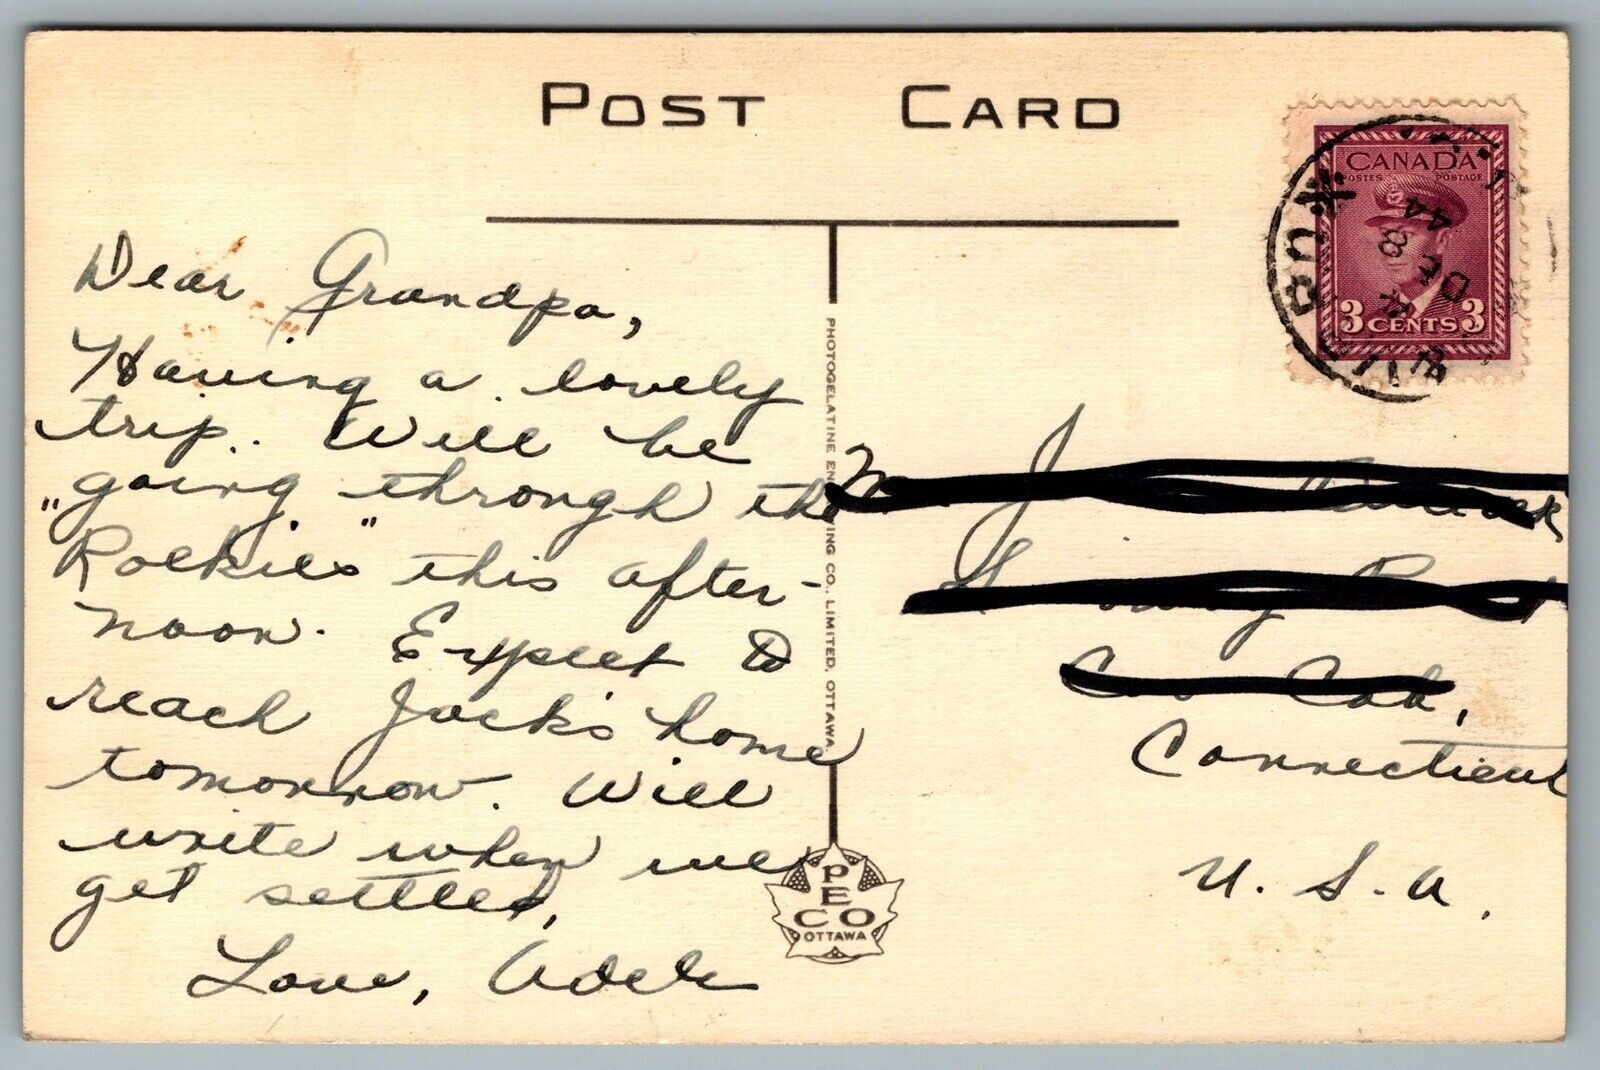 POST CARD
CANADA
POSTES POSTAGE
3 CENTS 3
DE 8
44
Dear Grandpa,
Having a lovely
trip. Will be
"going through the
Rockies" this after-
noon. Expect to
reach Jack's home
tomorrow. Will
write when we
get settled.
Love, Adele
PHOTOGELATINE ENGRAVING CO., LIMITED, OTTAWA.
PECO
OTTAWA
Cos Cob,
Connecticut
U. S. A.